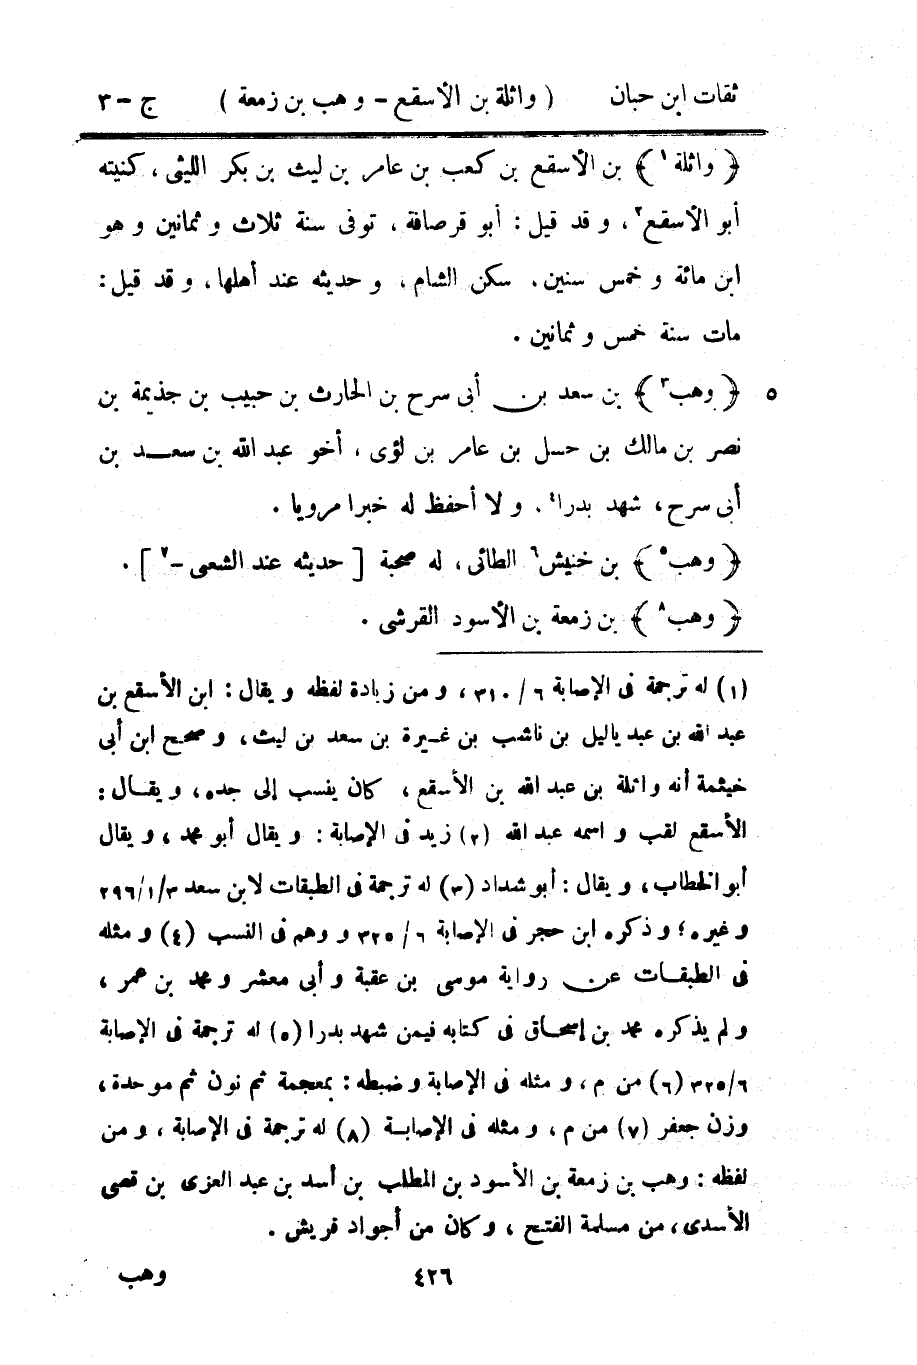 ثقات ابن حبان ( واثلة بن الأسقع - وهب بن زمعة ) ج - ٣
﴿ واثلة١ ﴾ بن الأسقع بن كعب بن عامر بن ليث بن بكر الليثى ، كنيته
أبو الأسقع٢ ، و قد قيل : أبو قرصافة ، توفى سنة ثلاث و ثمانين و هو
ابن مائة و خمس سنين ، سكن الشام ، و حديثه عند أهلها ، و قد قيل :
مات سنة خمس و ثمانين .
﴿ وهب٣ ﴾ بن سعد بن أبى سرح بن الحارث بن حبيب بن جذيمة بن ٥
نصر بن مالك بن حسل بن عامر بن لؤى ، أخو عبد الله بن سعد بن
أبى سرح ، شهد بدرا٤ ، و لا أحفظ له خبرا مرويا .
﴿ وهب٥ ﴾ بن خنبش٦ الطائى ، له صحبة [ حديثه عند الشعبى -٧ ] .
﴿ وهب٨ ﴾ بن زمعة بن الأسود القرشى .
(١) له ترجمة فى الإصابة ٦ / ٣١٠ ، و من زيادة لفظه و يقال : ابن الأسقع بن
عبد الله بن عبد ياليل بن ناشب بن غيرة بن سعد بن ليث ، و صحح ابن أبى
خيثمة أنه واثلة بن عبد الله بن الأسقع ، كان ينسب إلى جده ، و يقال :
الأسقع لقب و اسمه عبد الله (٢) زيد فى الإصابة : و يقال أبو محمد ، و يقال
أبو الخطاب ، و يقال : أبو شداد (٣) له ترجمة فى الطبقات لابن سعد ٣/١/٢٩٦
و غيره ؛ و ذكره ابن حجر فى الإصابة ٦ / ٣٢٥ و وهم فى النسب (٤) و مثله
فى الطبقات عن رواية موسى بن عقبة و أبى معشر و محمد بن عمر ،
و لم يذكره محمد بن إسحاق فى كتابه فيمن شهد بدرا (٥) له ترجمة فى الإصابة
٦/٣٢٥ (٦) من م ، و مثله فى الإصابة و ضبطه : بمعجمة ثم نون ثم موحدة ،
وزن جعفر (٧) من م ، و مثله فى الإصابة (٨) له ترجمة فى الإصابة ، و من
لفظه : وهب بن زمعة بن الأسود بن المطلب بن أسد بن عبد العزى بن قصى
الأسدى ، من مسلمة الفتح ، و كان من أجواد قريش .
٤٢٦ وهب